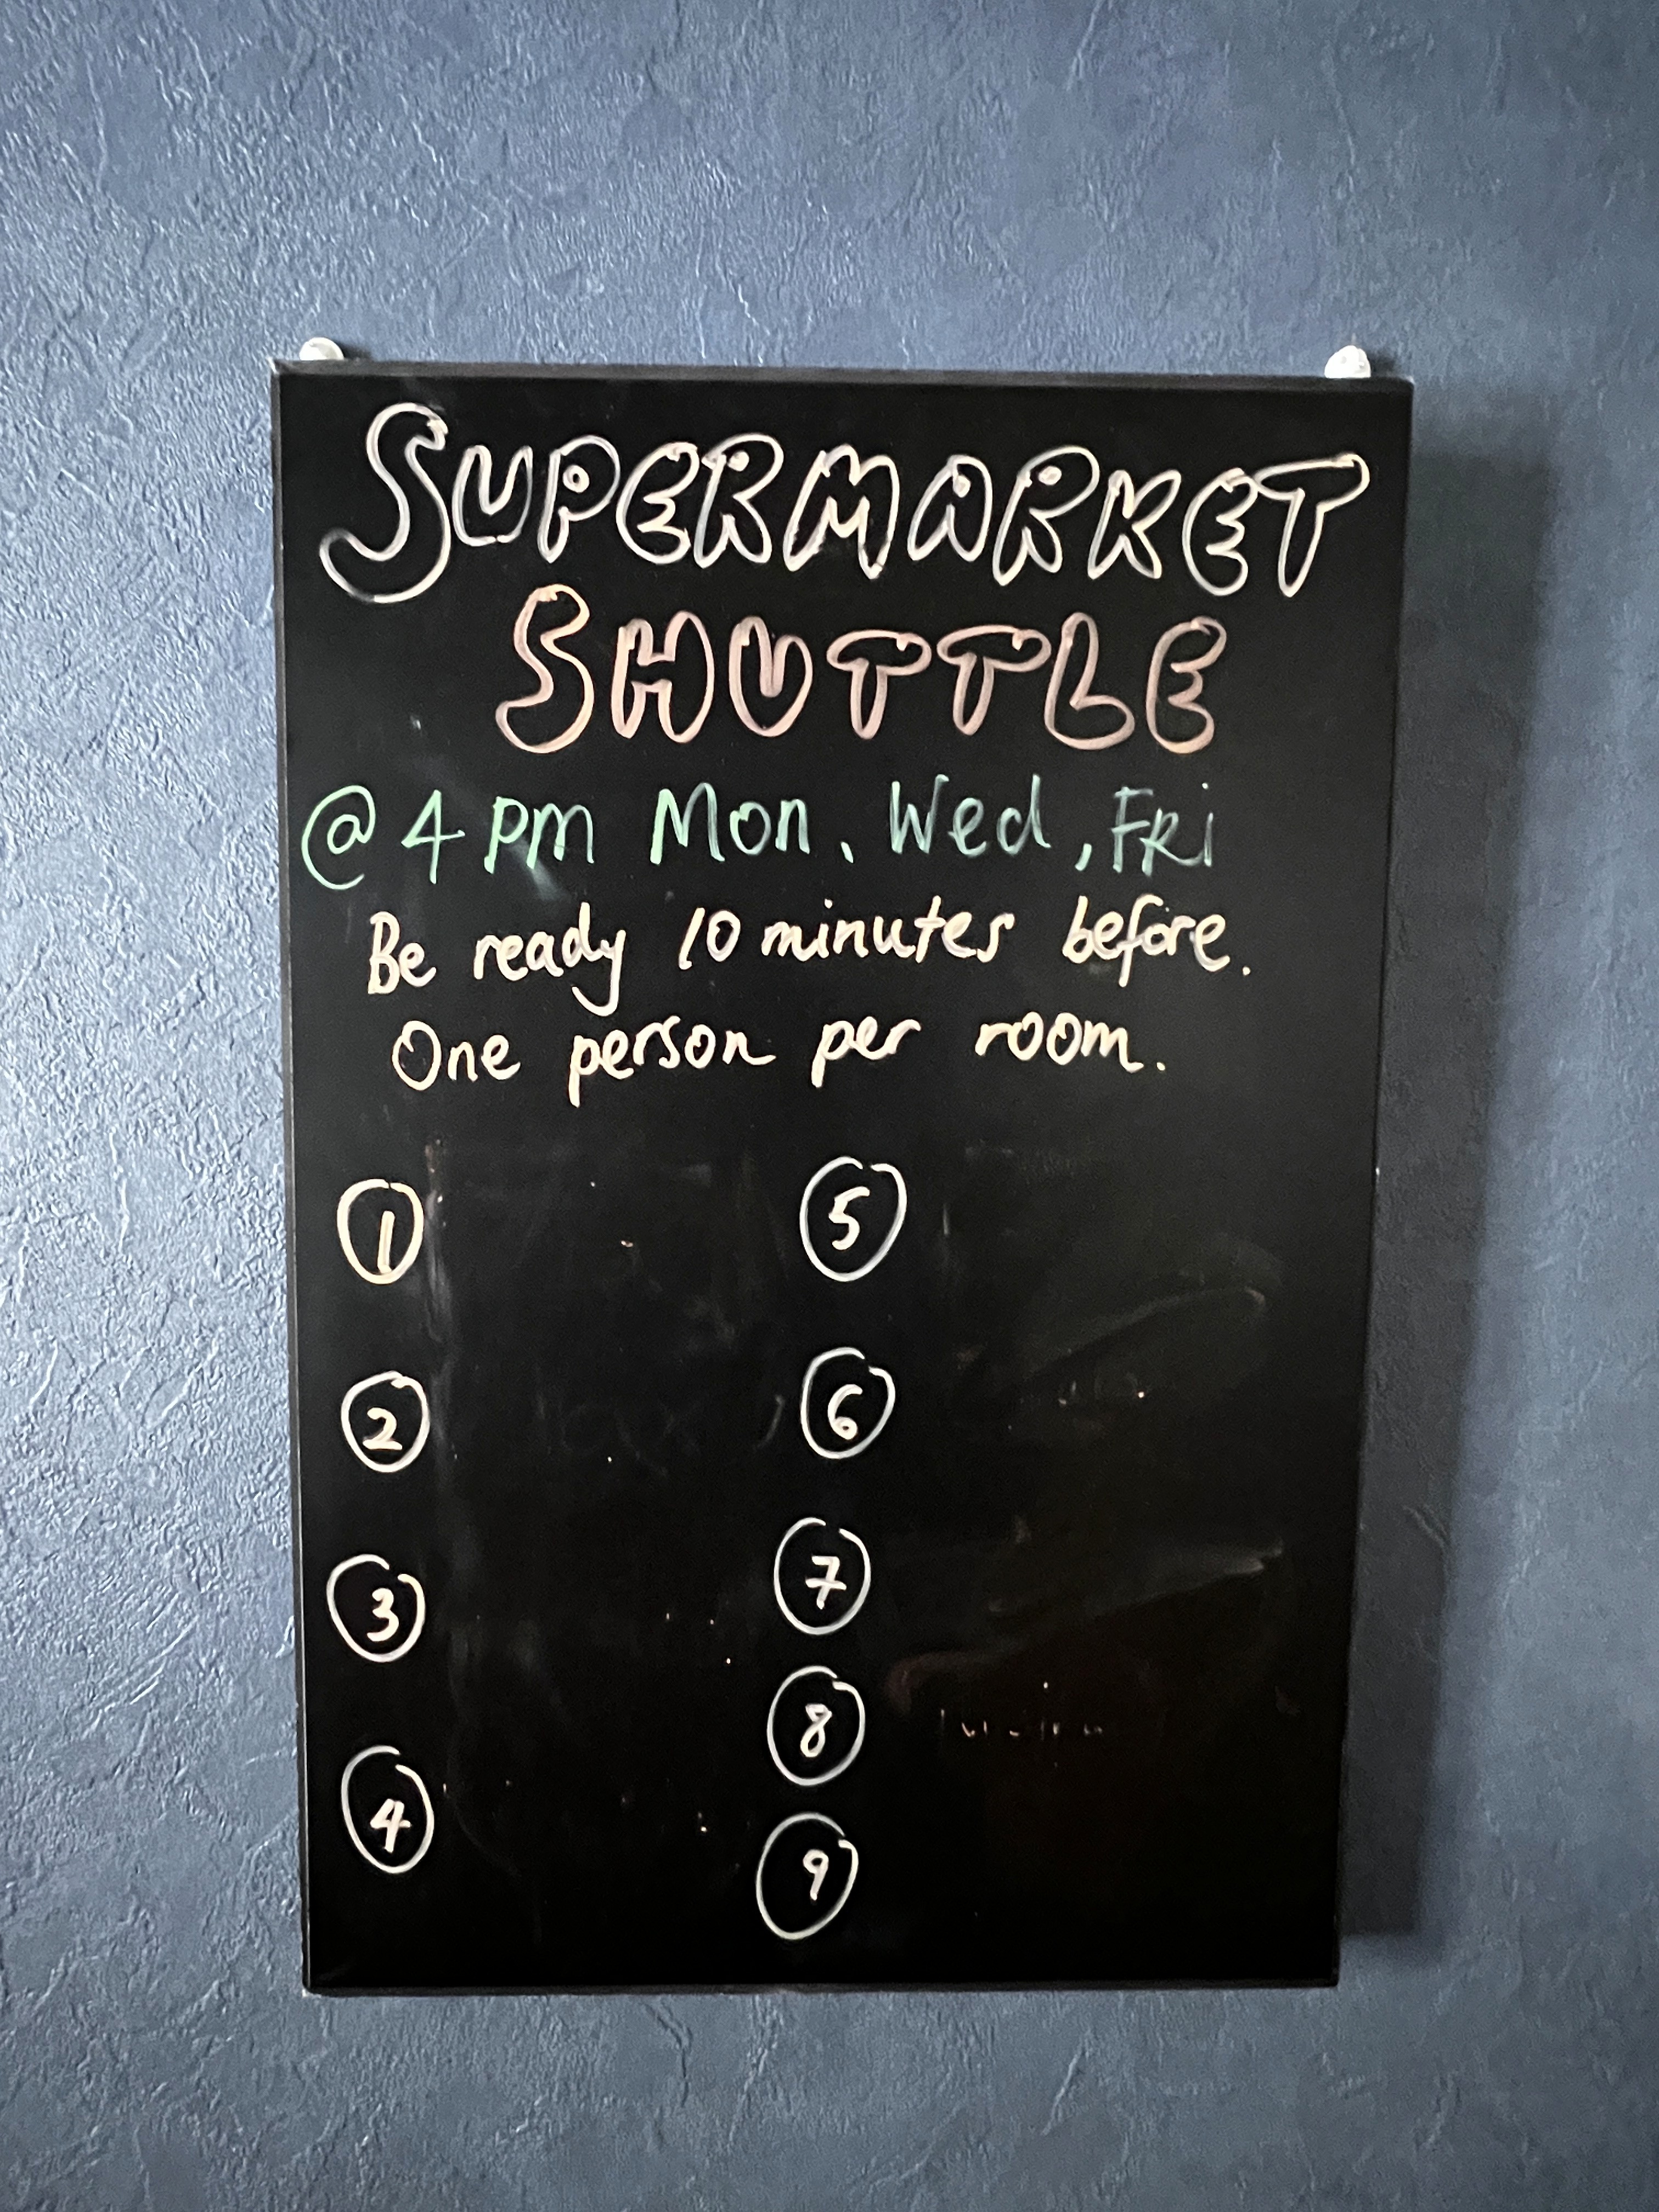 SUPERMARKET
SHUTTLE
@ 4 pm Mon, Wed, FRi
Be ready 10 minutes before.
One person per room.
1
2
3
4
5
6
7
8
9